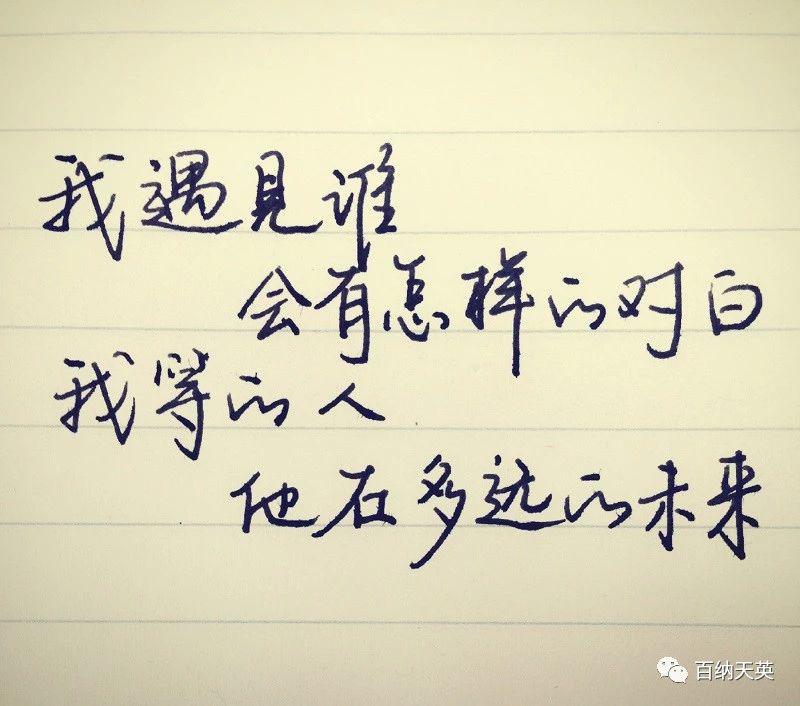 我遇見谁
会有怎样的对白
我等的人
他在多远的未来
百纳天英